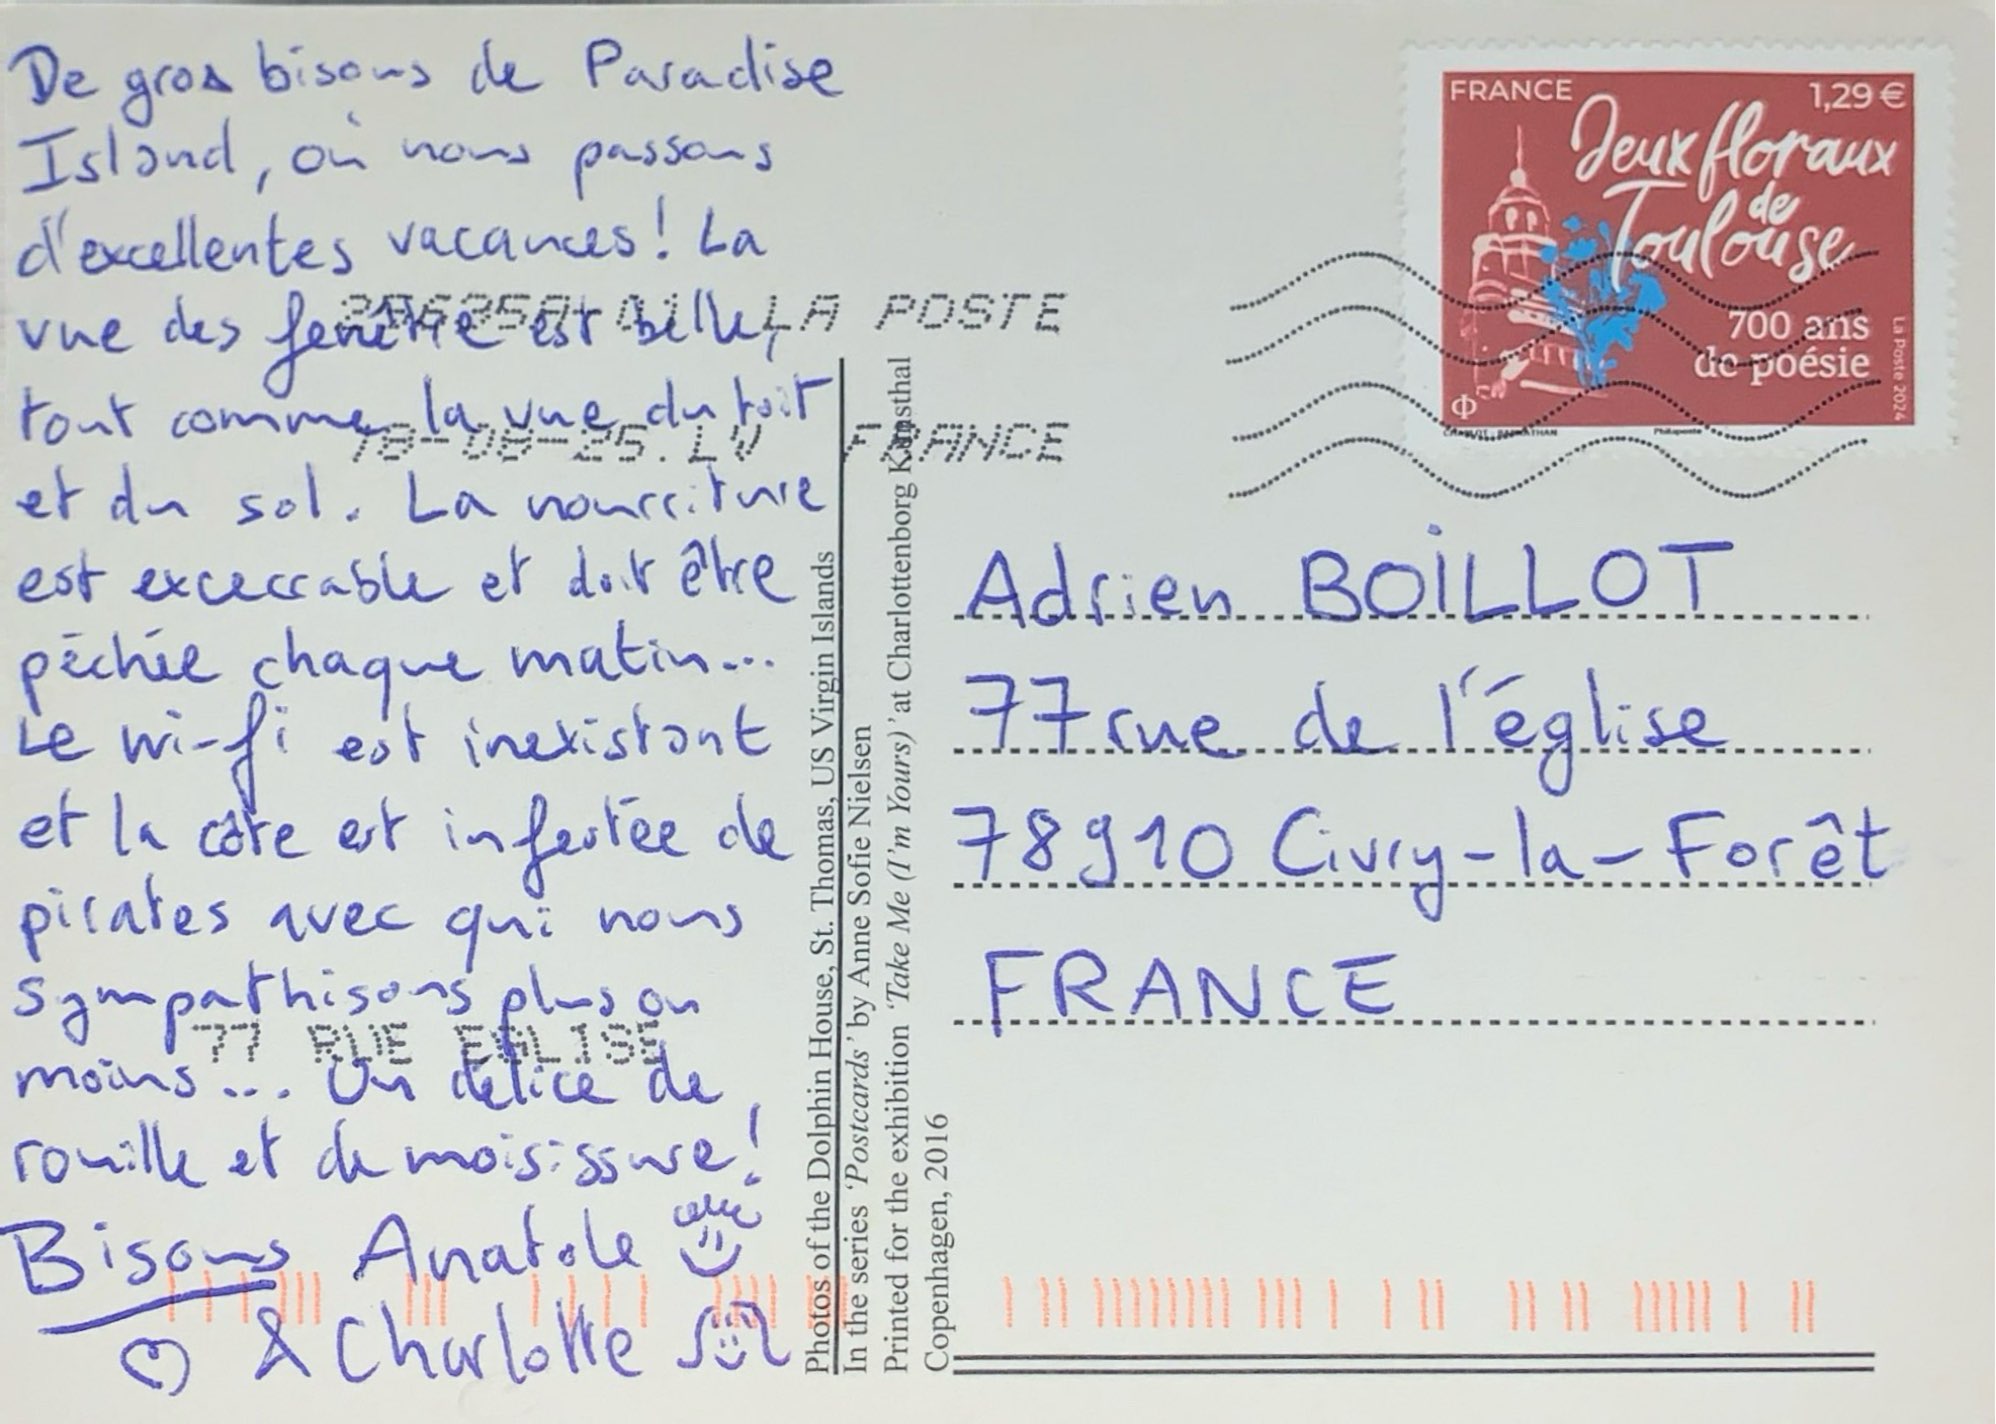 De gros bisous de Paradise
Island, où nous passons
d'excellentes vacances! La
vue des fenêtre est belle,
tout comme la vue du toit
et du sol. La nourriture
est excecrable et doit être
pêchée chaque matin...
Le wi-fi est inexistant
et la côte est infestée de
pirates avec qui nous
sympathisons plus ou
moins... Un délice de
rouille et de moisissure!
Bisous Anatole
& Charlotte
LA POSTE
18-08-25. FRANCE
77 RUE EGLISE
Photos of the Dolphin House, St. Thomas, US Virgin Islands
In the series 'Postcards' by Anne Sofie Nielsen
Printed for the exhibition 'Take Me (I'm Yours)' at Charlottenborg Kunsthal
Copenhagen, 2016
FRANCE 1,29 €
Jeux floraux
de
Toulouse
700 ans
de poésie
La Poste 2024
Philaposte
Adrien BOILLOT
77 rue de l'église
78910 Civry-la-Forêt
FRANCE